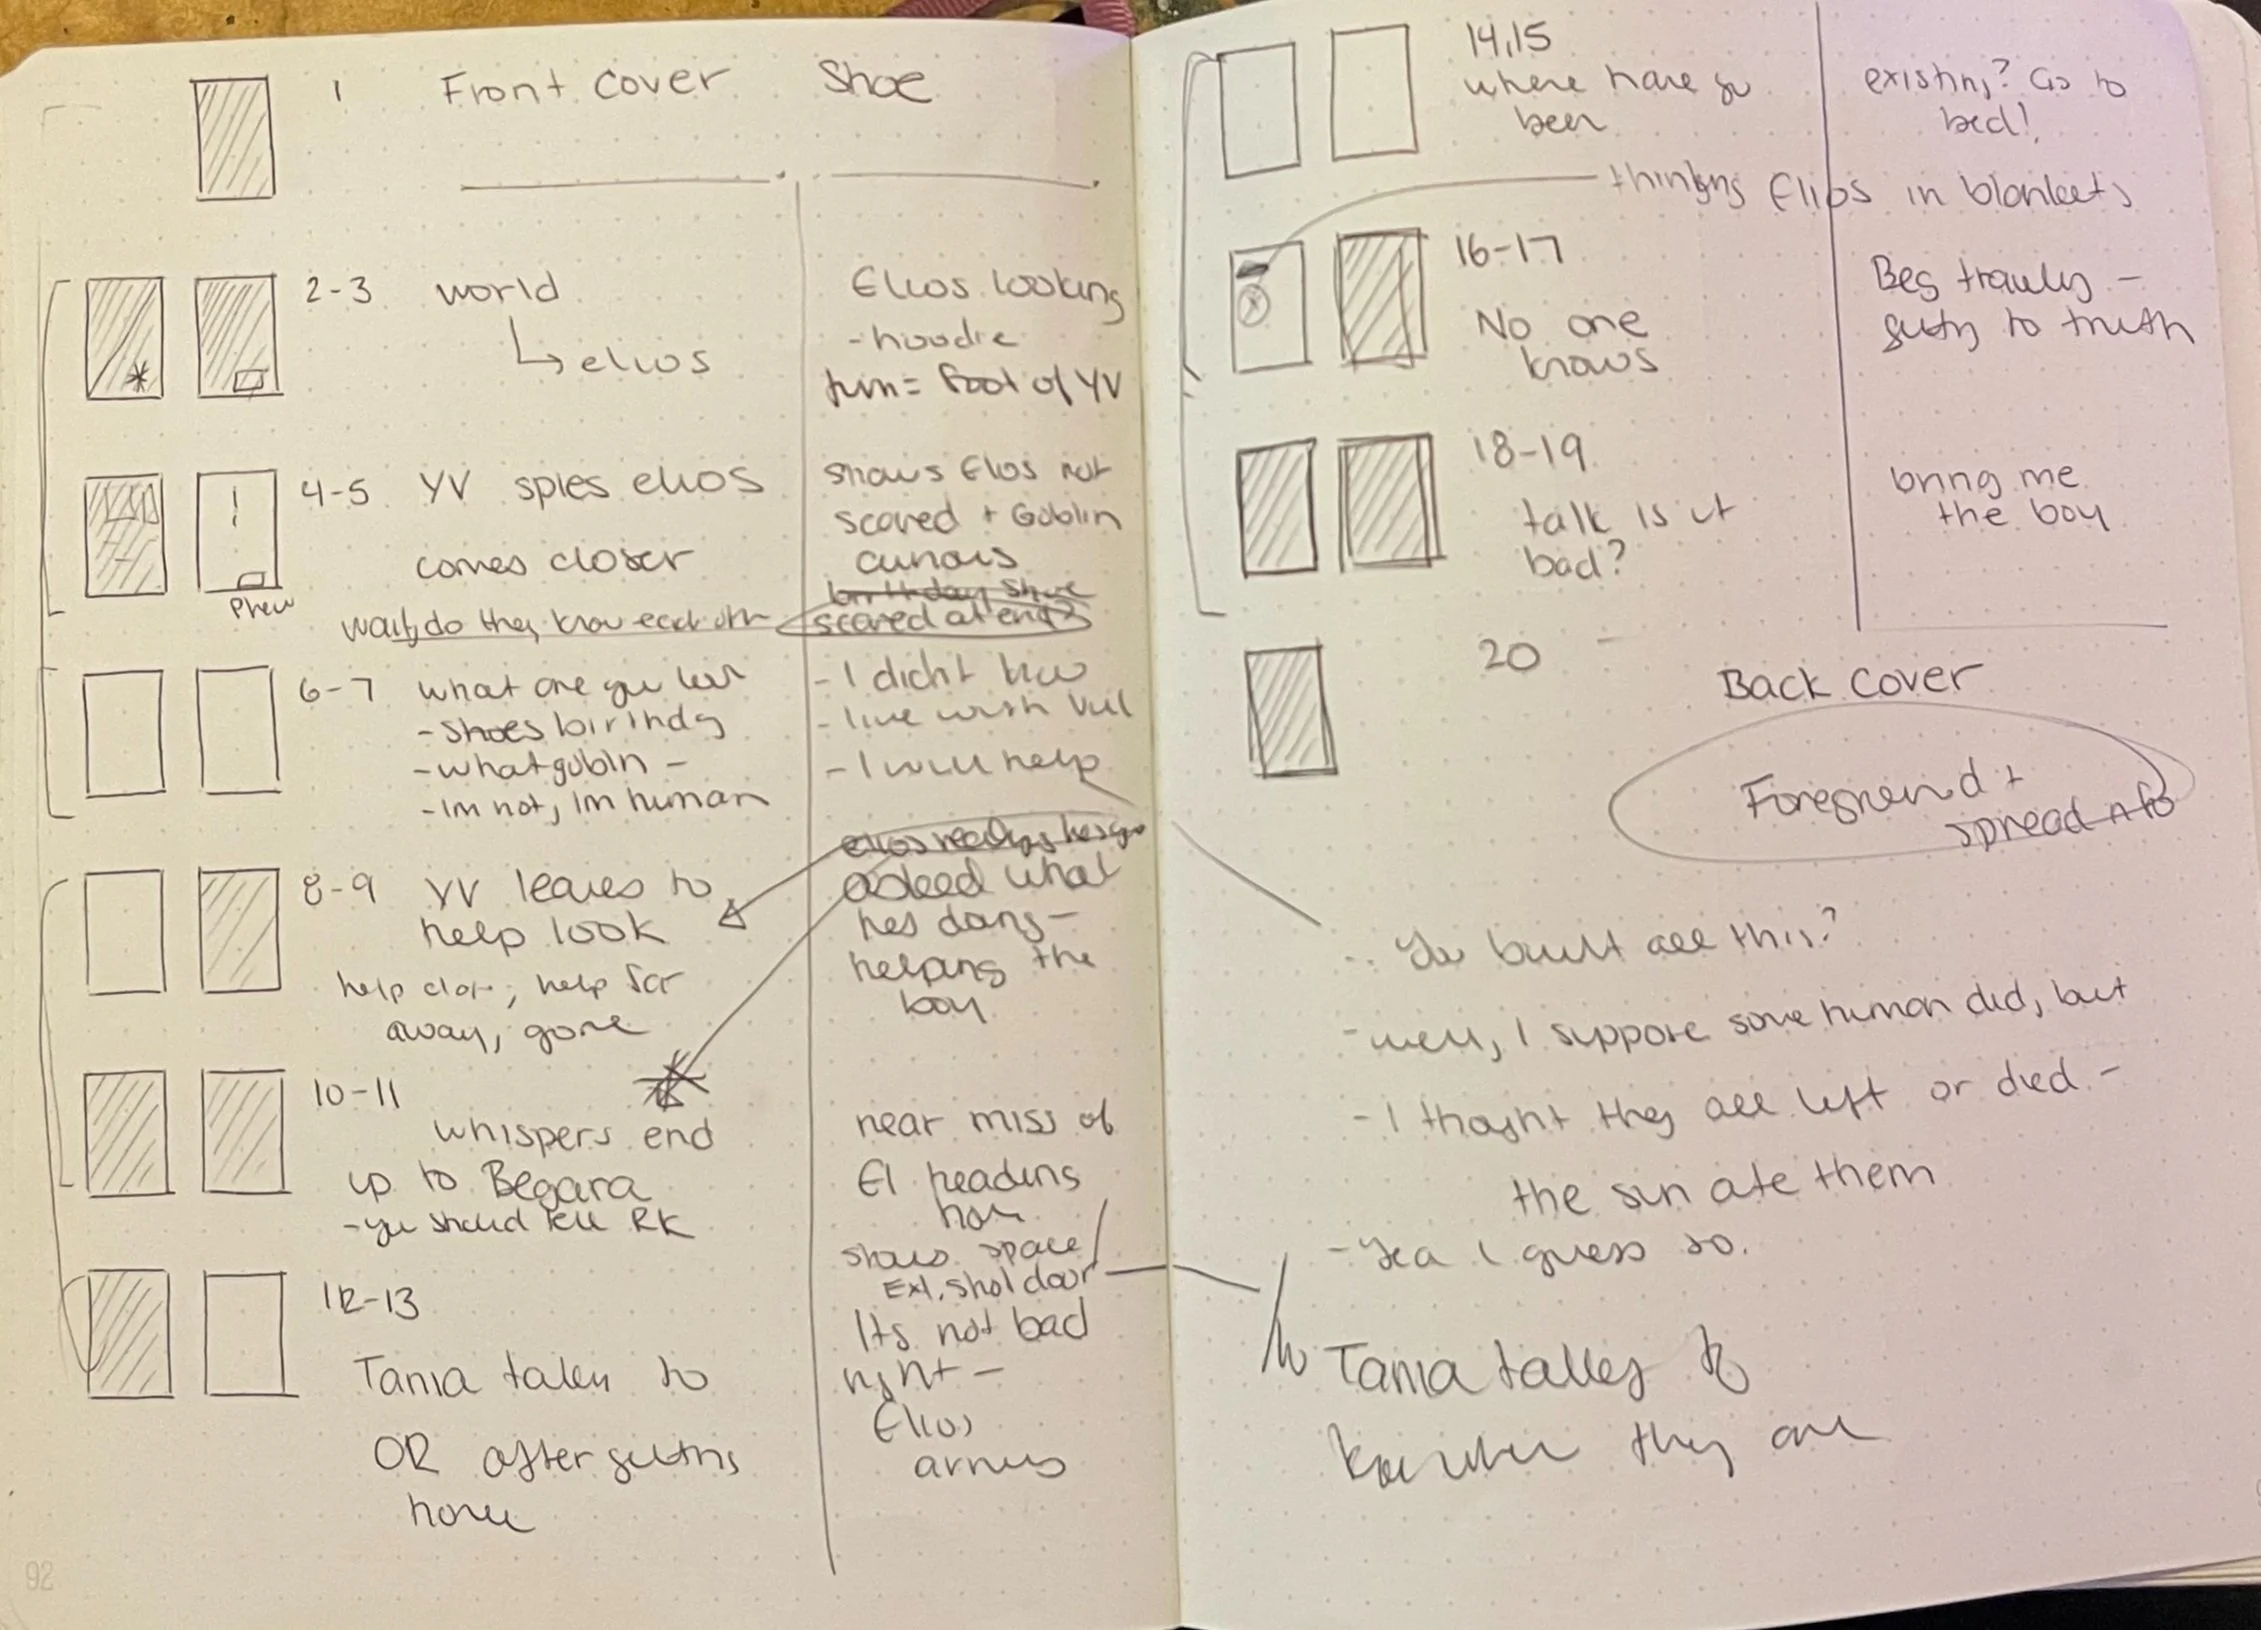 1 Front Cover Shoe
2-3 world
elios
Elios looking
-hoodie
turn = foot of YV
4-5 YV spies elios
comes closer
Phew
wait, do they know each othr
shows Elios not
scared + Goblin
curious
birthday shoe
scared at end?
6-7 what are you
- shoes birthdy
- what goblin -
- Im not, Im human
- I didnt know
- live with Vul
- I will help
8-9 YV leaves to
help look
help clos, help far
away, gone
asked what
hes doing -
helping the
boy
10-11
whispers end
up to Begara
- you should tell RK
near miss of
El heading
hom
shows space
Ext. shot door
12-13
Tania talks to
OR after getting
home
Its not bad
right -
Elios
arrives
92
14,15
where have you
been
existing? Go to
bed!
thinking Elios in blankets
16-17
No one
knows
Beg trawling -
to truth
18-19
talk is it
bad?
bring me
the boy
20
Back Cover
Foreground +
spread nfo
You built all this?
- well, I suppose some human did, but
- I thought they all left or died -
the sun ate them
- Yea I guess so.
Tania talks to
they are